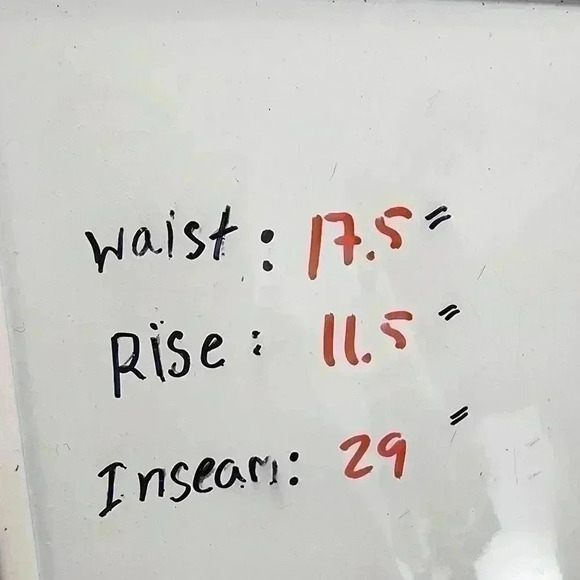 Waist: 17.5"
Rise: 11.5"
Inseam: 29"